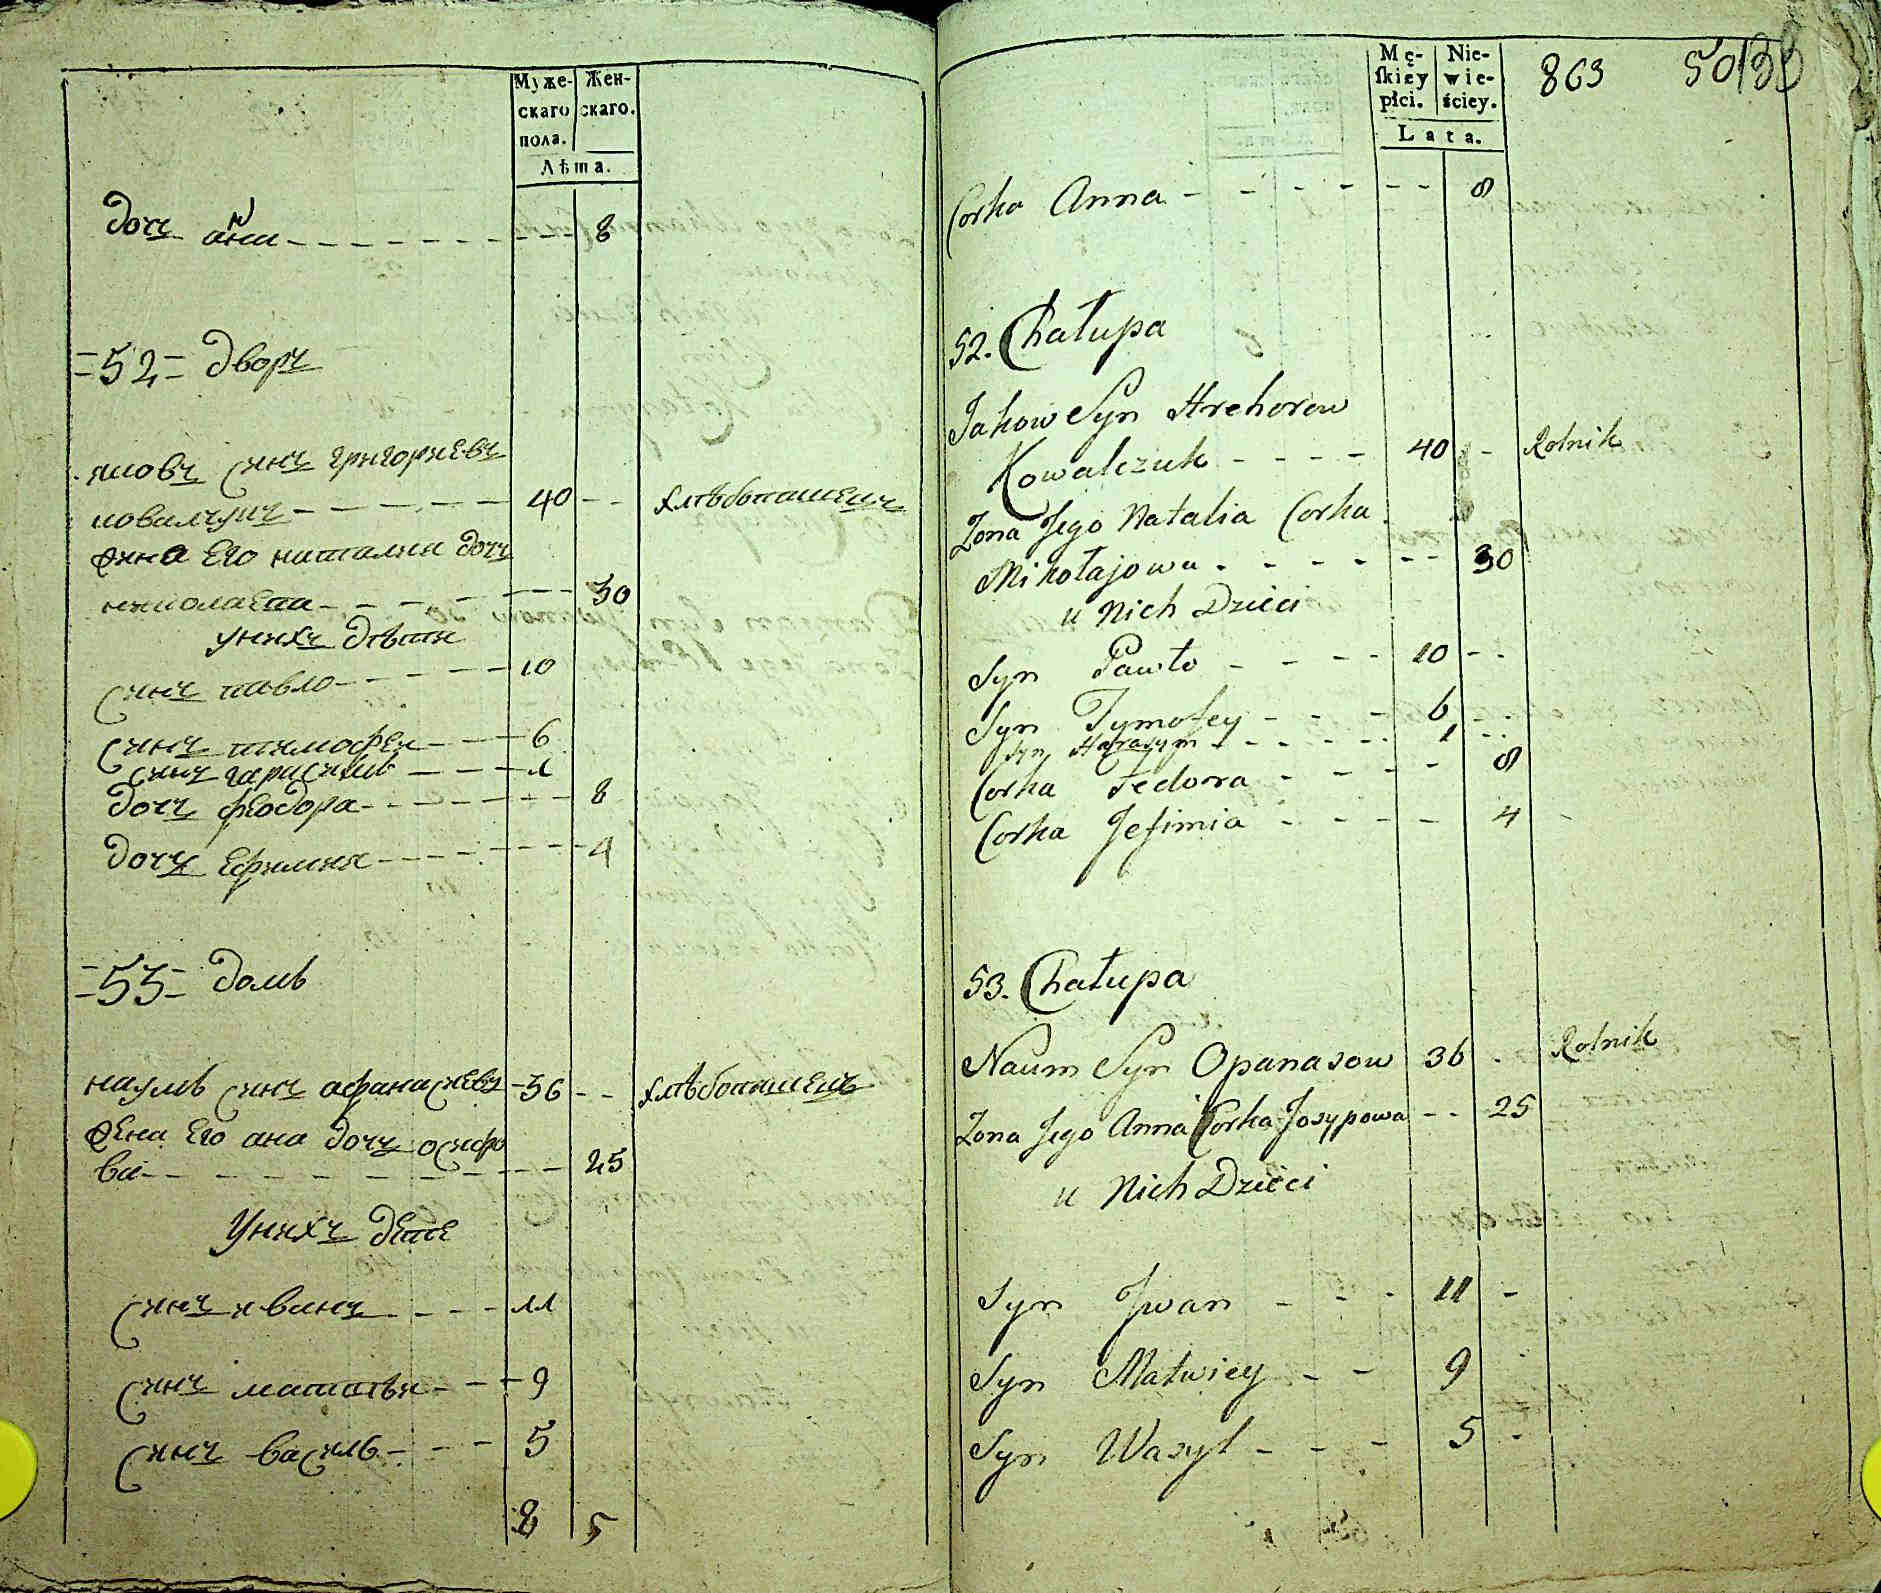 Муже-
скаго
пола.
Жен-
скаго.
Лѣта.
дочъ анна - - - - - - - 8
=52= дворъ
яковъ синъ григориевъ
ковалчукъ - - - - - 40 - - хлѣбопашецъ
жена его наталия дочъ
николаева - - - - - - 30
унихъ дѣти
синъ павло - - - - - 10
синъ тимофеи - - - 6
синъ гарасимъ - - - 1
дочъ феодора - - - - - - - 8
дочъ ефимия - - - - - - - 4
=53= домъ
наумъ синъ афанасиевъ - 36 - - хлѣбопашецъ
жена его ана дочъ осифо
ва - - - - - - - - - 25
Унихъ дете
синъ иванъ - - - - 11
синъ матвѣи - - - 9
синъ василь - - - - 5
8 5
Mę-
skiey
płci.
Nie-
wie-
ściey.
Lata.
863 50 138
Corka Anna - - - - - - 8
52. Chałupa
Jakow Syn Hrehorow
Kowalczuk - - - - 40 - Rolnik
Zona Jego Natalia Corka
Mikołajowa - - - - - - 30
u Nich Dzieci
Syn Pawło - - - - 10 - -
Syn Tymofey - - - 6 - -
Syn Harasym - - - - - 1 - -
Corka Fedora - - - - 8
Corka Jefimia - - - - 4 -
53. Chałupa
Naum Syn Opanasow 36 - Rolnik
Zona Jego Anna Corka Josypowa - - 25
u Nich Dzieci
Syn Jwan - - - 11 -
Syn Matwiey - - 9
Syn Wasyl - - - 5 -